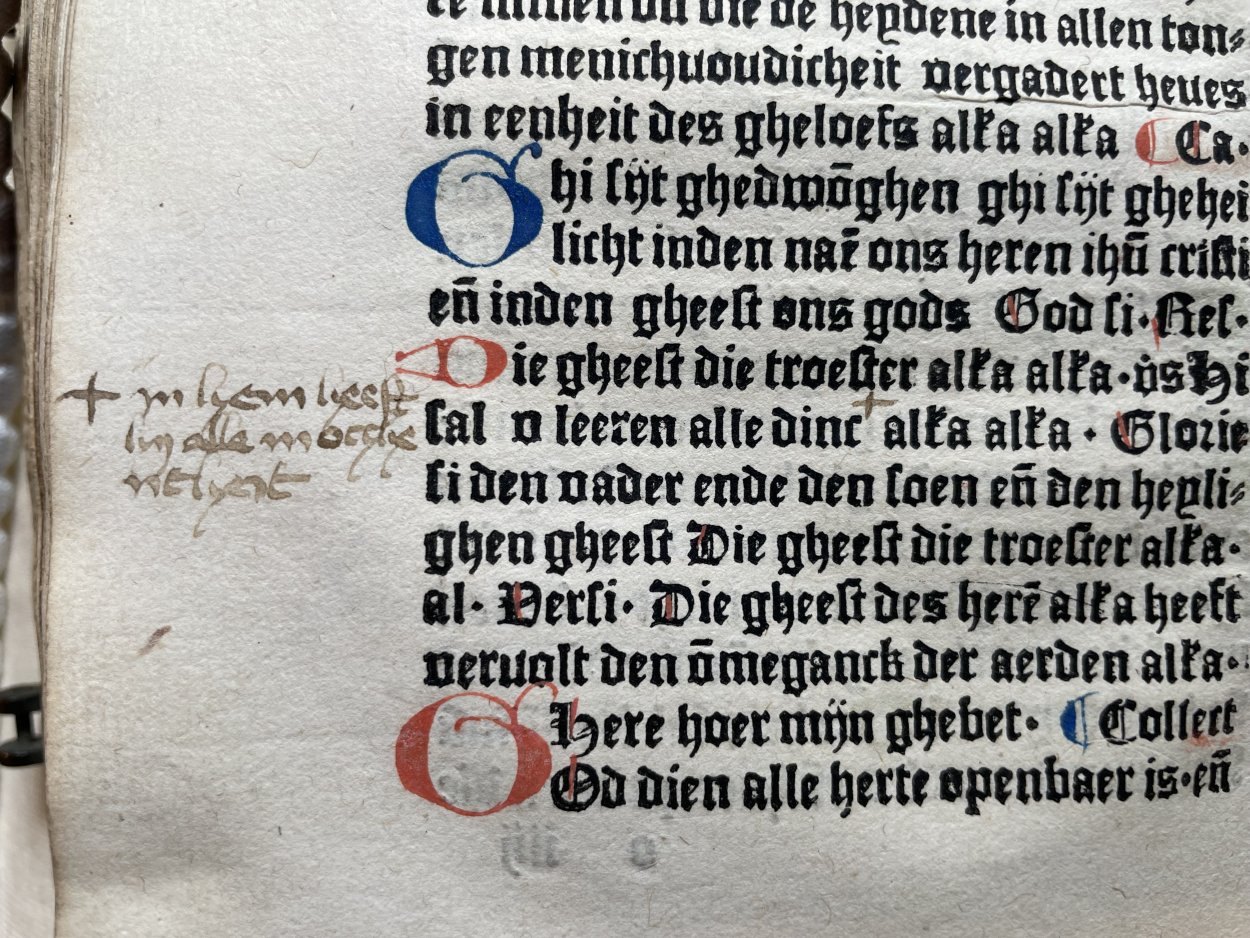 te innen vn die de heydene in allen ton⸗
gen menichuoudicheit vergadert heues
in eenheit des gheloefs alṙa alṙa ¶ Ca·
Ghi sijt ghedwōghen ghi sijt ghehei
licht inden nāe ons heren ihū cristi
eñ inden gheest ons gods God si· Res·
Die gheest die troester alṙa alṙa· v̇s Hi
sal v leeren alle dinc + alṙa alṙa · Glorie
si den vader ende den soen eñ den heyli⸗
ghen gheest Die gheest die troester alṙa·
al· Versi· Die gheest des herē alṙa heeft
veruolt den ōmeganck der aerden alṙa·
Here hoer mijn ghebet· ¶ Collect
GOd dien alle herte openbaer is· eñ
+ in hem heeft
hi alle moeghe
ntheit